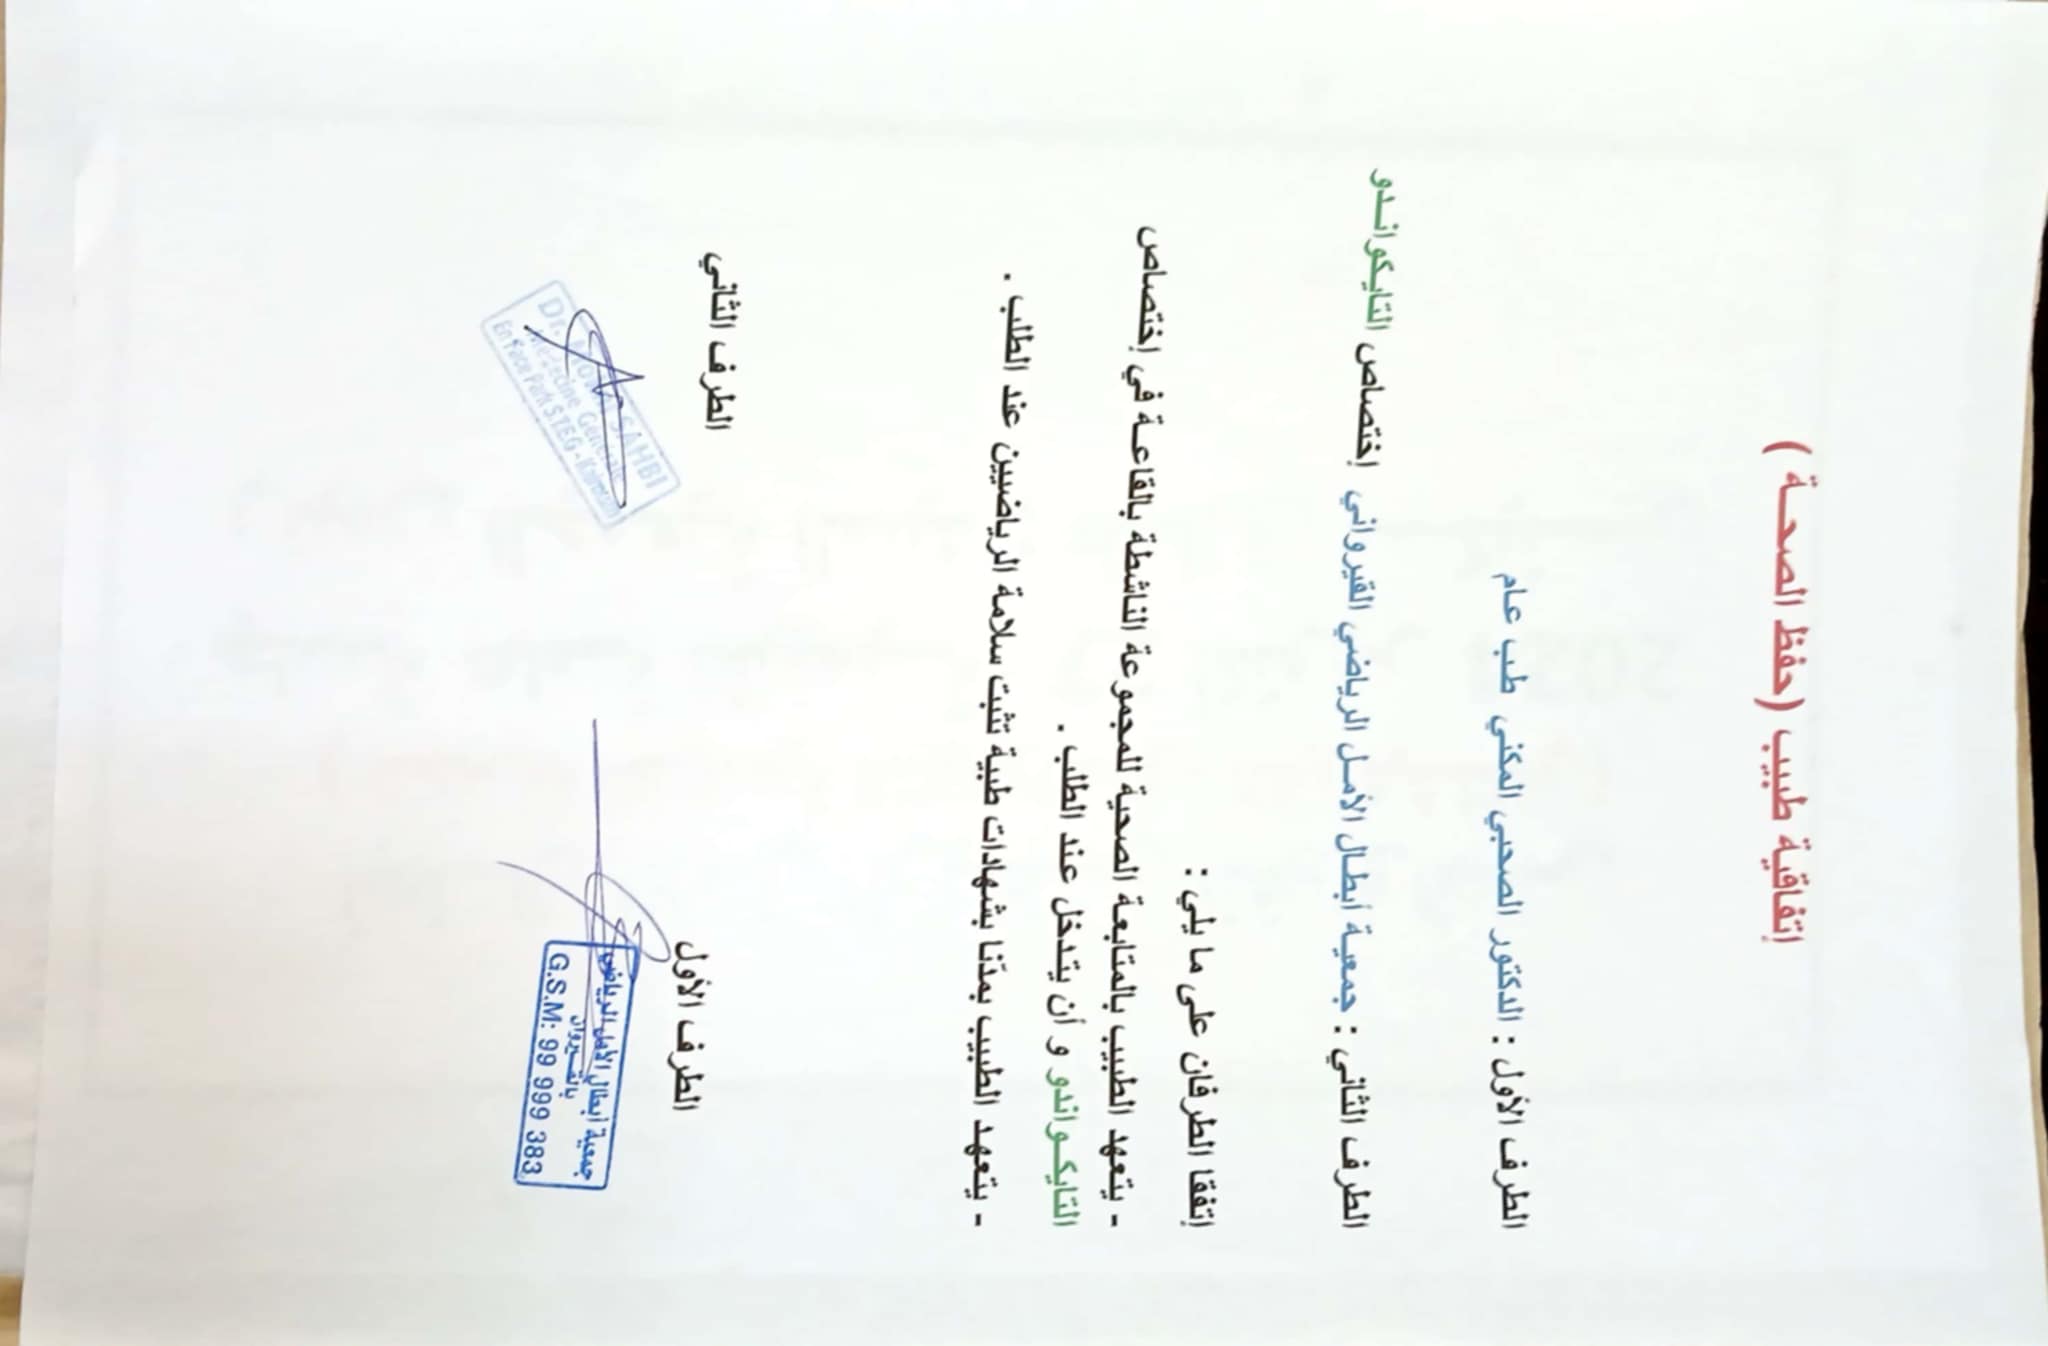 إتفاقية طبيب (حفظ الصحة )
الطرف الأول : الدكتور الصحبي المكني طب عام
الطرف الثاني : جمعية أبطال الأمل الرياضي القيرواني إختصاص التايكواندو
إتفقا الطرفان على ما يلي :
- يتعهد الطبيب بالمتابعة الصحية للمجموعة الناشطة بالقاعة في إختصاص
التايكواندو و أن يتدخل عند الطلب .
- يتعهد الطبيب يمدّنا بشهادات طبية تثبت سلامة الرياضيين عند الطلب .
الطرف الأول
الطرف الثاني
جمعية أبطال الأمل الرياضي
بالقيروان
G.S.M: 99 999 383
Dr. SAHBI
Médecine Générale
En face Park STEG - Kairouan